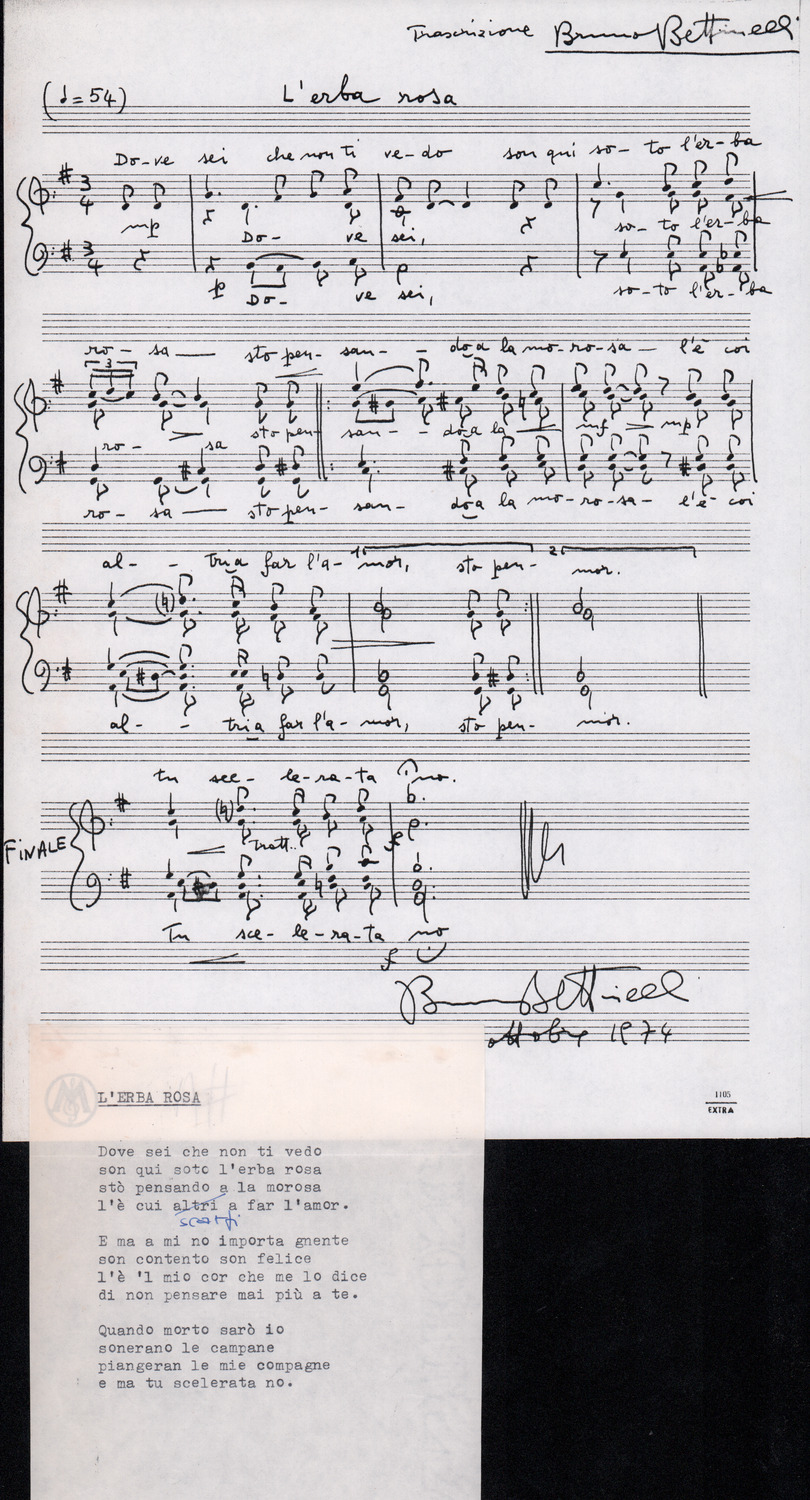 Trascrizione Bruno Bettinelli
(♩=54) L'erba rosa
Do-ve sei che non ti ve-do son qui so-to l'er-ba
mp Do- ve sei, so-to l'er-ba
p Do- ve sei, so-to l'er-ba
ro-sa sto pen-san- - do a la mo-ro-sa l'è coi
ro- sa sto pen- san- - do a la mf mp
ro-sa sto pen-san- do a la mo-ro-sa- l'è coi
al- - tri a far l'a-mor, sto pen- mor.
al- - tri a far l'a-mor, sto pen- mor.
tu sce-le-ra-ta no.
FINALE
tratt. f
Tu sce-le-ra-ta no
f
Bruno Bettinelli
ottobre 1974
1105
EXTRA
L'ERBA ROSA
Dove sei che non ti vedo
son qui soto l'erba rosa
stò pensando a la morosa
l'è cui altri a far l'amor.
E ma a mi no importa gnente
son contento son felice
l'è 'l mio cor che me lo dice
di non pensare mai più a te.
Quando morto sarò io
sonerano le campane
piangeran le mie compagne
e ma tu scelerata no.